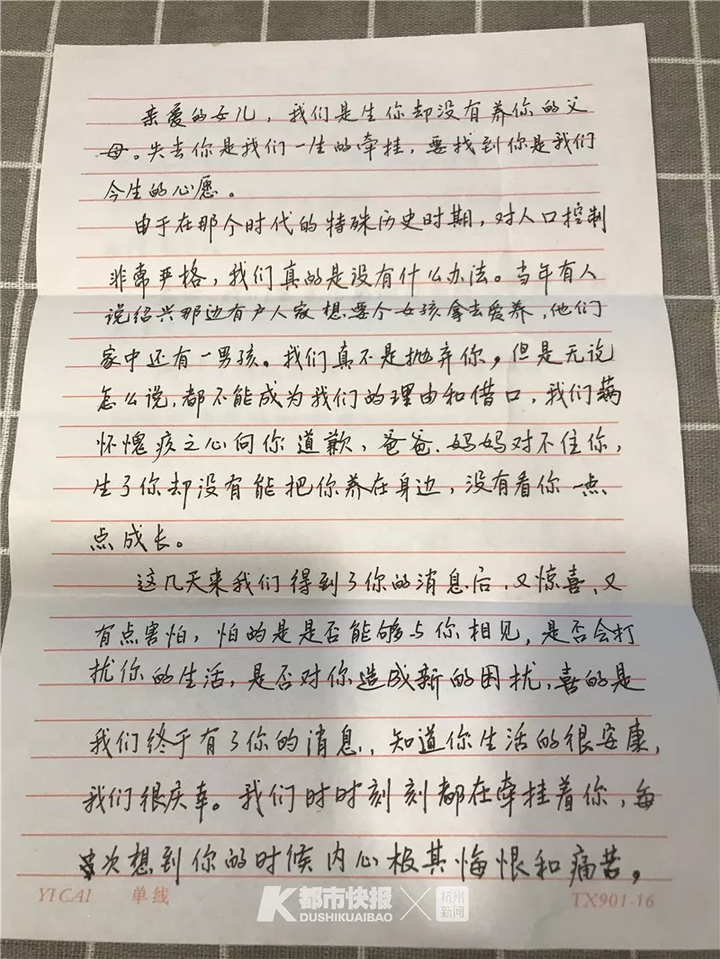 亲爱的女儿，我们是生你却没有养你的父
母。失去你是我们一生的牵挂，要找到你是我们
今生的心愿。
由于在那个时代的特殊历史时期，对人口控制
非常严格，我们真的是没有什么办法。当年有人
说绍兴那边有户人家想要个女孩拿去爱养，他们
家中还有一男孩。我们真不是抛弃你，但是无论
怎么说，都不能成为我们的理由和借口，我们满
怀愧疚之心向你道歉，爸爸、妈妈对不住你，
生了你却没有能把你养在身边，没有看你一点
点成长。
这几天来我们得到了你的消息后，又惊喜、又
有点害怕，怕的是是否能够与你相见，是否会打
扰你的生活，是否对你造成新的困扰，喜的是
我们终于有了你的消息，知道你生活的很安康，
我们很庆幸。我们时时刻刻都在牵挂着你，每
次想到你的时候内心极其悔恨和痛苦，
YI CAI 单线 TX901-16
K都市快报 × 杭州新闻
DUSHIKUAIBAO